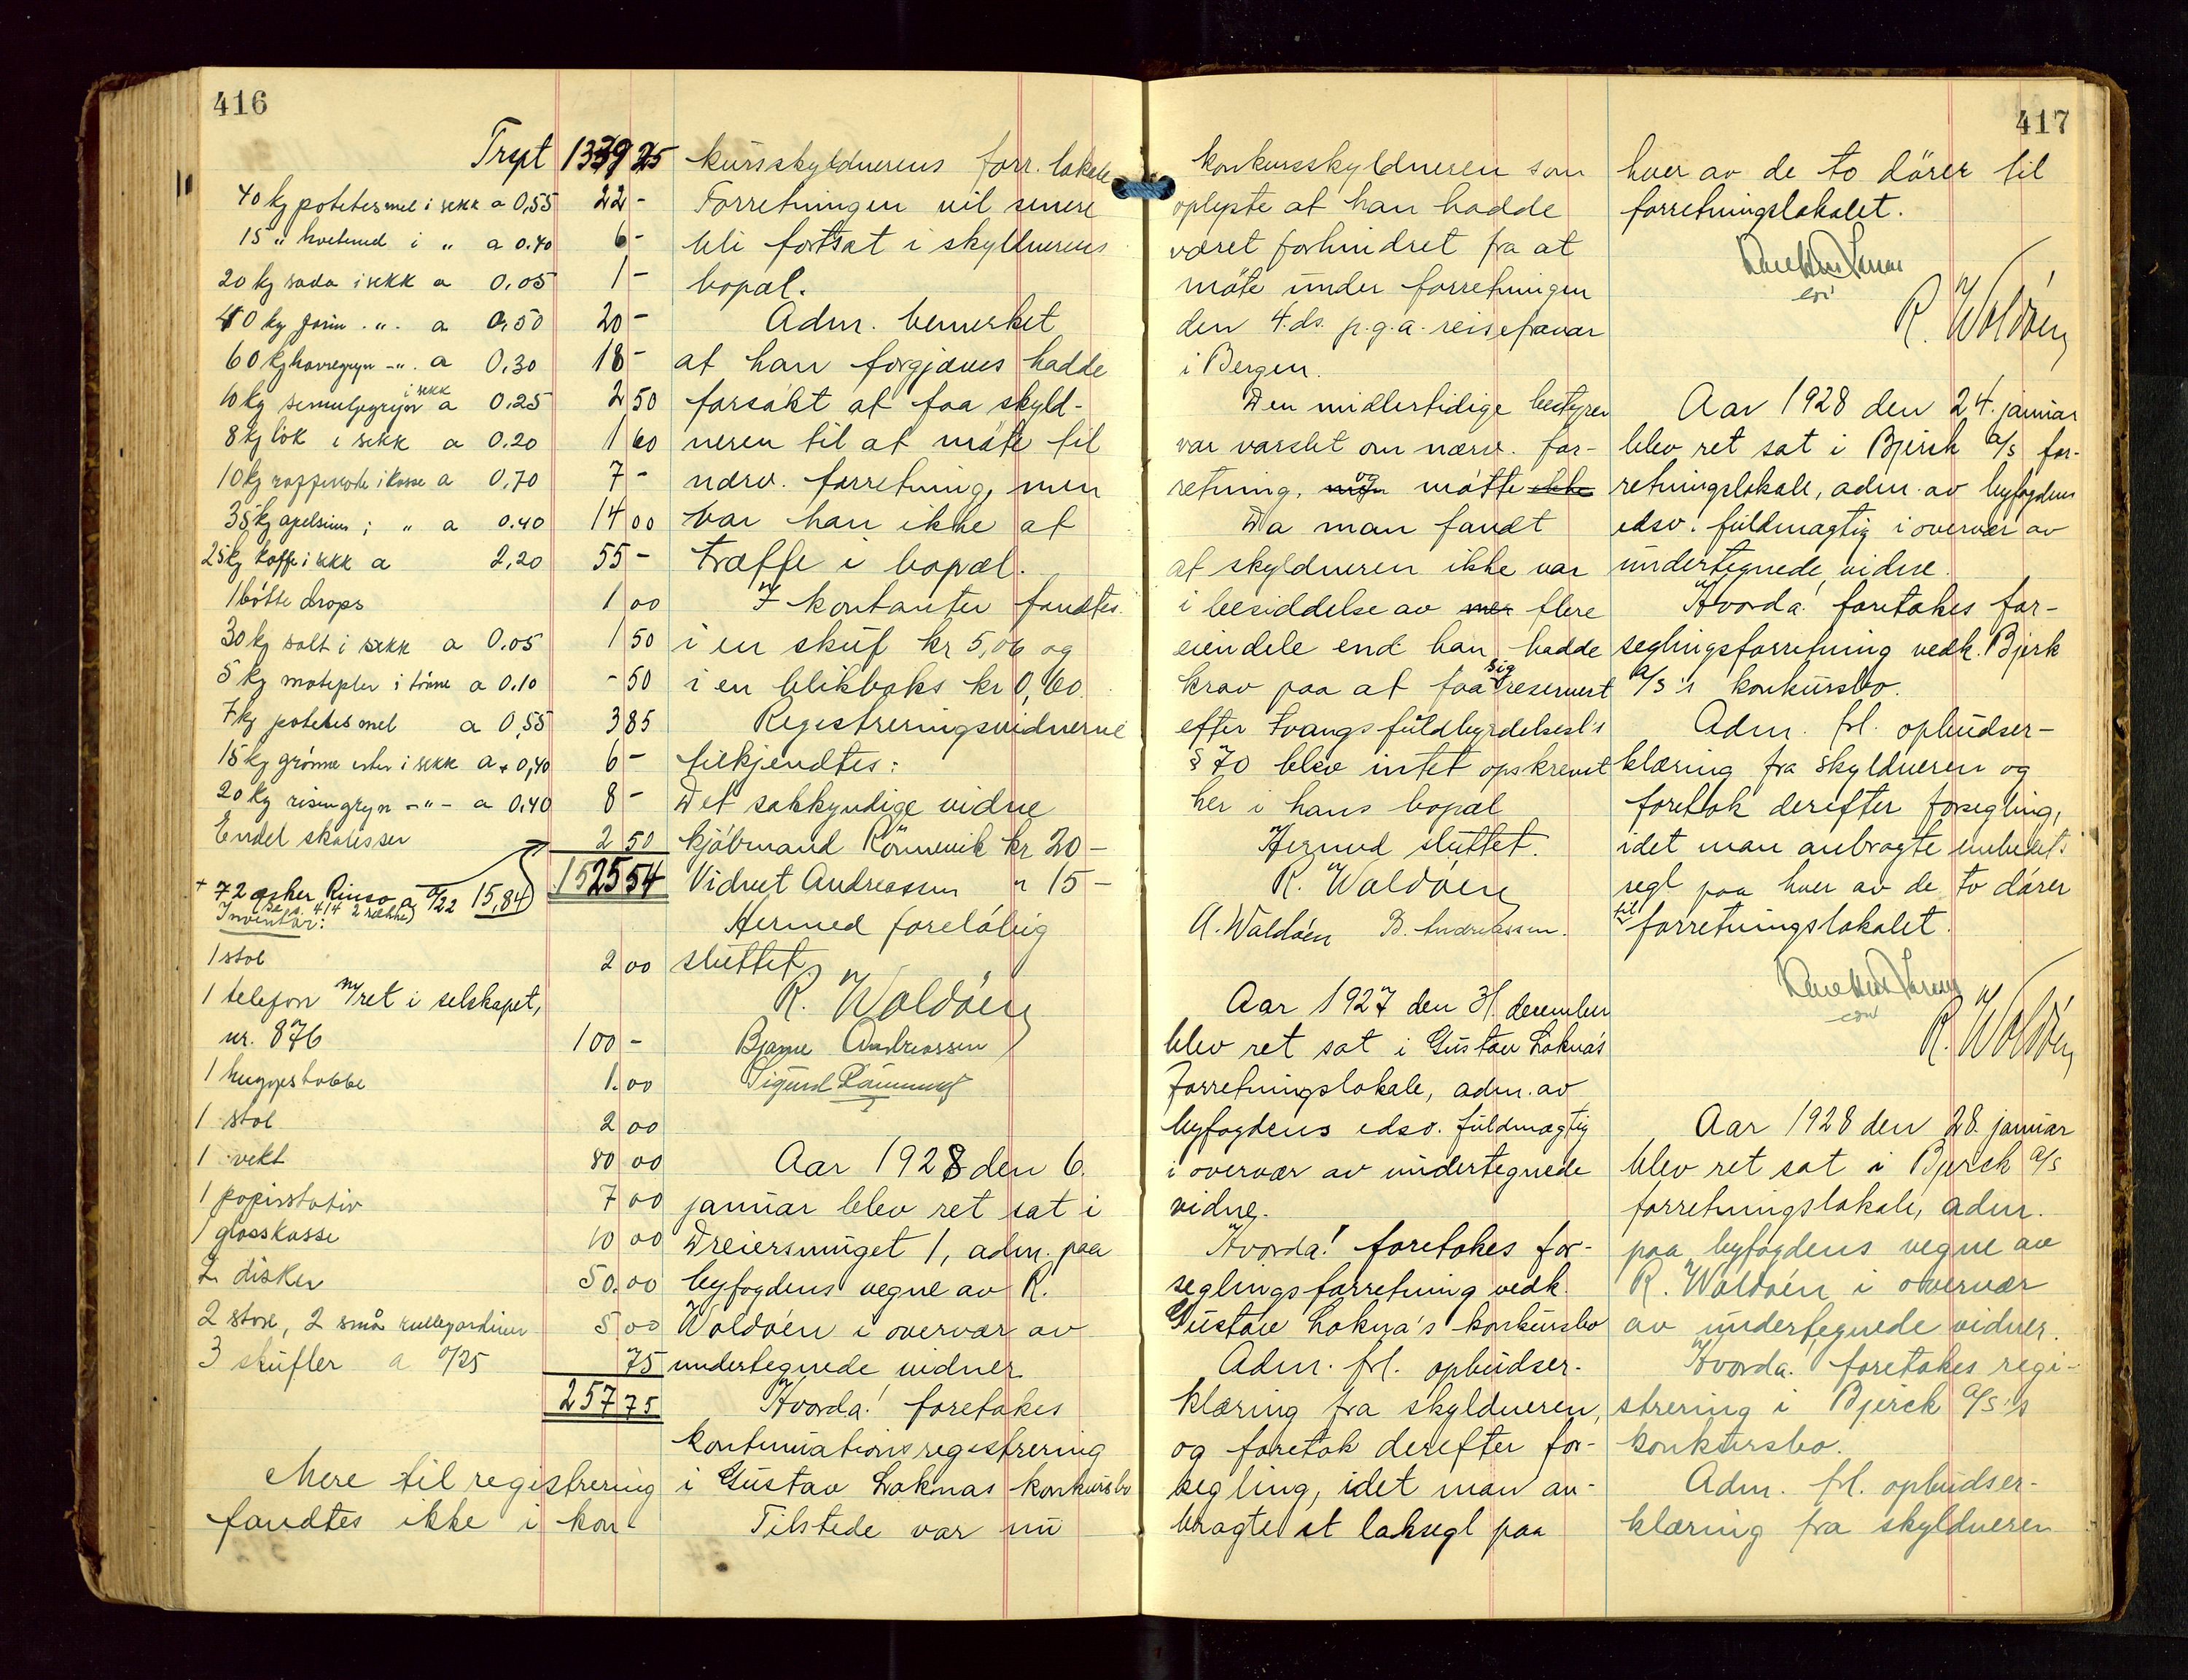 416
Trpt 1339 25
40 kg potetesmel i sekk a 0,55 22 -
15 " hvetemel i " a 0.40 6 -
20 kg soda i sekk a 0.05 1 -
40 kg farin . " . a 0,50 20 -
60 kg havregryn - " . a 0,30 18 -
10 kg semuljegryn i sekk a 0.25 2 50
8 kg løk i sekk a 0.20 1 60
10 kg i kasse a 0,70 7 -
35 kg apelsiner i " a 0.40 14 00
25 kg kaffe i sekk a 2,20 55 -
1 bøtte drops 1 00
30 kg salt i sekk a 0.05 1 50
5 kg matepler i tønne a 0.10 - 50
7 kg potetesmel a 0,55 3 85
15 kg grønne erter i sekk a 0,40 6 -
20 kg risengryn - " - a 0,40 8 -
Endel skolisser 2 50
1525 54
+ 72 esker Rinso a 0/22 15,84
(se s. 414 2 række)
Inventar:
1 stol 2 00
1 telefon m/ret i selskapet,
nr. 876 100 -
1 huggestabbe 1.00
1 stol 2 00
1 vekt 80 00
1 papirstativ 7 00
1 glasskasse 10 00
2 disker 50.00
2 store, 2 små rullegardiner 5 00
3 skufler a 0/25 75
257 75
Mere til registrering
fandtes ikke i kon-
kursskyldnerens forr. lokale
Forretningen vil senere
bli fortsat i skyldnerens
bopæl.
Adm. bemerket
at han forgjæves hadde
forsøkt at faa skyld-
neren til at møte til
nærv. forretning, men
var han ikke at
træffe i bopæl.
I kontanter fandtes
i en skuf kr 5,06 og
i en blikboks kr 0,60.
Registreringsvidnerne
tilkjendtes:
Det sakkyndige vidne
kjøbmand Rönnevik kr 20 -
Vidnet Andreassen " 15 -
Hermed foreløbig
sluttet
R. Waldøen
Bjarne Andreassen
Sigurd Rönnevik
Aar 1928 den 6.
januar blev ret sat i
Dreiersmuget 1, adm. paa
byfogdens vegne av R.
Waldøen i overvær av
undertegnede vidner
Hvorda! foretokes
kontinuationsregistrering
i Gustav Loknas konkursbo
Tilstede var nu
417
konkursskyldneren som
oplyste at han hadde
været forhindret fra at
møte under forretningen
den 4. ds. p.g.a. reisefravær
i Bergen.
Den midlertidige bestyrer
var varslet om nærv. for-
retning, og møtte ikke
Da man fandt
at skyldneren ikke var
i besiddelse av mer flere
eiendele end han hadde
krav paa at faa sig reservert
efter tvangsfuldbyrdelsesl's
§ 70 blev intet opskrevet
her i hans bopæl
Hermed sluttet.
R. Waldøen
A. Waldøen B. Andreassen.
Aar 1927 den 31. december
blev ret sat i Gustav Lokna's
forretningslokale, adm. av
byfogdens edsv. fuldmægtig
i overvær av undertegnede
vidne.
Hvorda! foretokes for-
seglingsforretning vedk.
Gustav Lokna's konkursbo
Adm. frl. opbudser-
klæring fra skyldneren,
og foretok derefter for-
segling, idet man an-
bragte et laksegl paa
hver av de to dører til
forretningslokalet.
R. Waldøen
Aar 1928 den 24. januar
blev ret sat i Bjerck A/S for-
retningslokale, adm. av byfogdens
edsv. fuldmægtig i overvær av
undertegnede vidne.
Hvorda! foretokes for-
seglingsforretning vedk. Bjerk
A/S's konkursbo.
Adm. frl. opbudser-
klæring fra skyldneren og
foretok derefter forsegling,
idet man anbragte embeds-
segl paa hver av de to dører
til forretningslokalet.
R. Waldøen
Aar 1928 den 28. januar
blev ret sat i Bjerck A/S
forretningslokale, adm.
paa byfogdens vegne av
R. Waldøen i overvær
av undertegnede vidner.
Hvorda! foretokes regi-
strering i Bjerck A/S's
konkursbo.
Adm. frl. opbudser-
klæring fra skyldneren